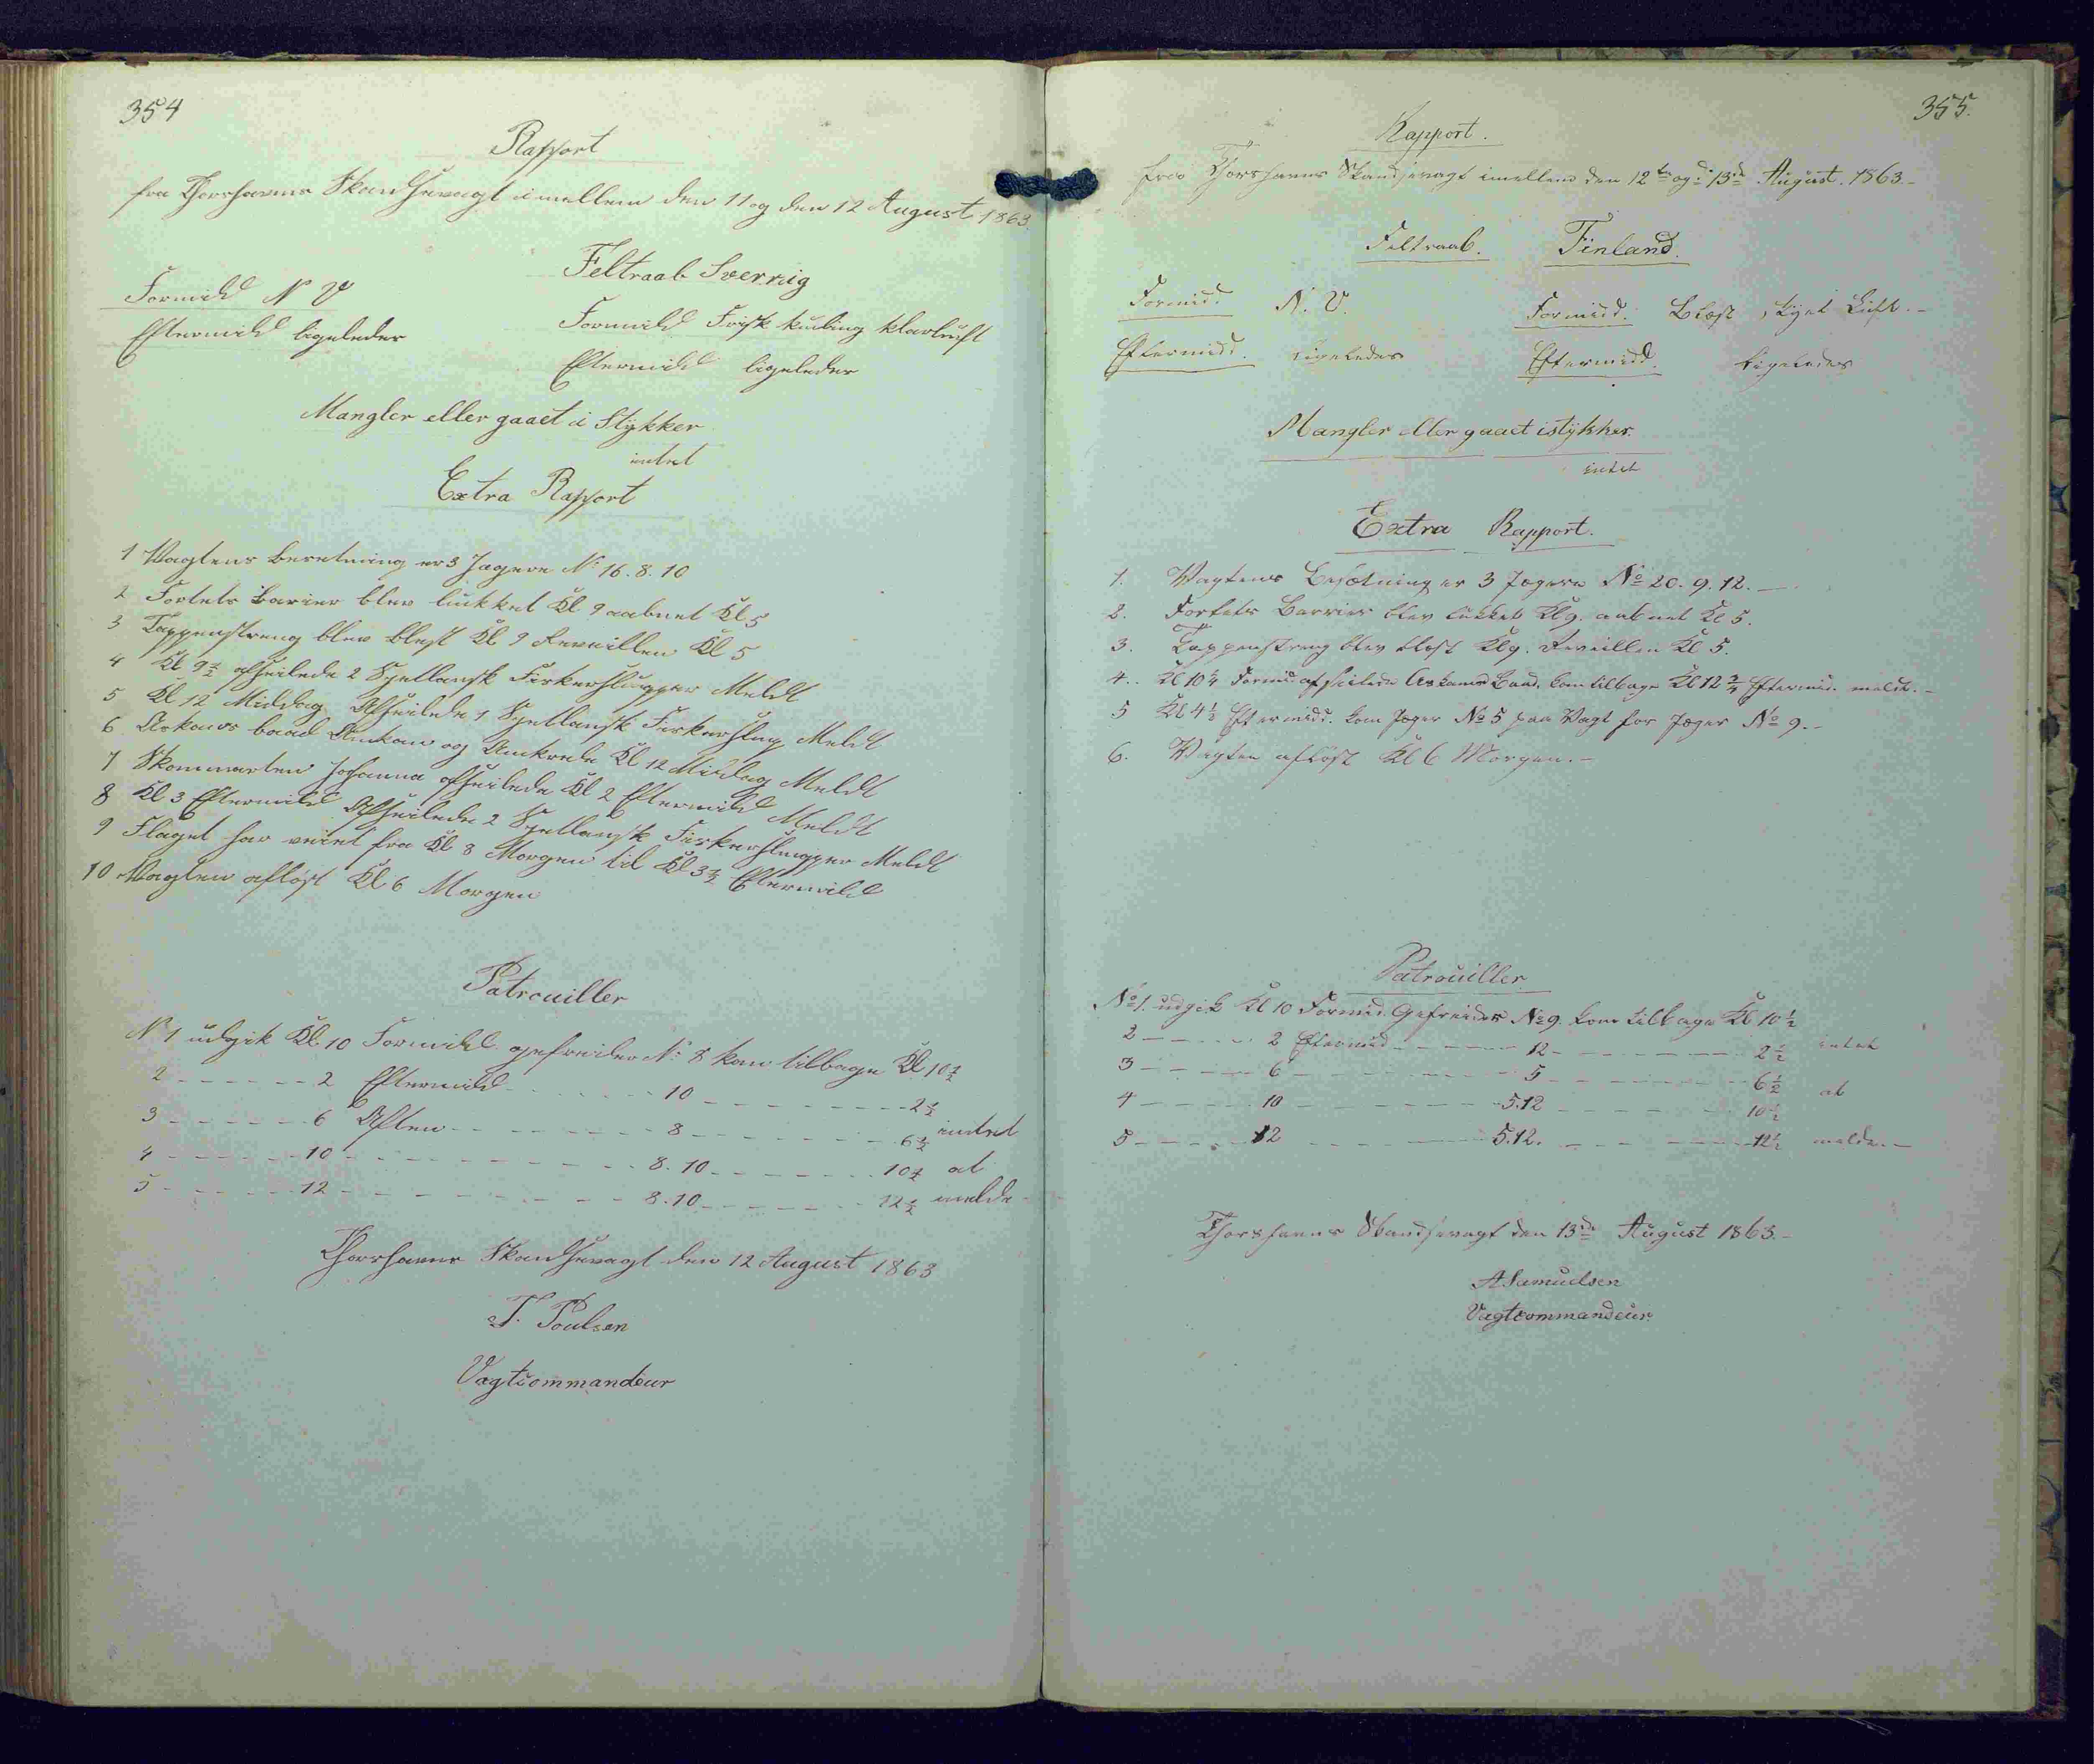 354
Rapport
fra Thorshavns Skandsevagt imellem den 11 og den 12 August 1863
Feltraab Sverrig
Formidd N V
Formidd Frisk kuling klarluft
Eftermidd ligeledes
Eftermidd ligeledes
Mangler eller gaaet i Stykker
intet
Extra Rapport
1 Vagtens Besetning er 3 Jagere No 16. 8. 10
2 Fortets Barier blev lukket Kl 9 aabnet Kl 5
3 Tappenstreng blev blest Kl 9 Reveillen Kl 5
4 Kl 9½ afseilede 2 Sjetlansk Fiskerslupper Meldt
5 Kl 12 Middag Afseilede 1 Sjetlansk Fiskerslup Meldt
6 baad Ankom og Ankrede Kl 12 Middag Meldt
7 Skonnarten Johanna afseilede Kl 2 Eftermidd Meldt
8 Kl 3 Eftermidd Afseilede 2 Sjetlansk Fiskerslupper Meldt
9 Flaget har veiet fra Kl 8 Morgen til Kl 3½ Eftermidd
10 Vagten afløst Kl 6 Morgen
Patrouiller
No 1 udgik Kl. 10 Formidd. gefreider No 8 kom tilbage Kl 10½
2 - - - - - - 2 Eftermidd - - - - - - 10 - - - - - - - - 2½
3 - - - - - - 6 Aften - - - - - - - 8 - - - - - - - - 6½ intet
4 - - - - - - 10 - - - - - - - - - - 8. 10 - - - - - - 10½ at
5 - - - - - - 12 - - - - - - - - - - 8. 10 - - - - - - 12½ melde
Thorshavns Skandsevagt den 12 August 1863
J. Poulsen
Vagtcommandeur
355.
Rapport.
fra Thorshavns Skandsevagt imellem den 12te og d. 13de August. 1863.-
Feltraab. Finland.
Formid. N. V. Formidd. Blæst, skyet Luft.-
Eftermidd. Ligeledes Eftermidd. Ligeledes
Mangler eller gaaet istykker.
intet
Extra Rapport.
1. Vagtens Besætning er 3 Jægere No 20. 9. 12.-
2. Fortets Barrier blev lukket Kl 9. aabnet Kl 5.
3. Tappenstreng blev blæst Kl 9. Reveillen Kl 5.
4. Kl 10¼ Formid afseilede Baad, kom tilbage Kl 12¾ Eftermid. meldt.-
5 Kl 4½ Eftermidd. kom Jæger No 5 paa Vagt for Jæger No 9.-
6. Vagten afløst Kl 6 Morgen.-
Patrouiller
No 1. udgik Kl 10 Formid. Gefreider No 9. kom tilbage Kl 10½
2 - - - - - 2 Eftermid - - - - - 12 - - - - - - - 2½ intet
3 - - - - - 6 - - - - - - - - - 5 - - - - - - - 6½
4 - - - - - 10 - - - - - - - - 5.12 - - - - - - 10½ at
5 - - - - - 12 - - - - - - - - 5.12. - - - - - - 12½ melde.-
Thorshavns Skandsevagt den 13de August 1863.-
A Samuelsen
Vagtcommandeur.